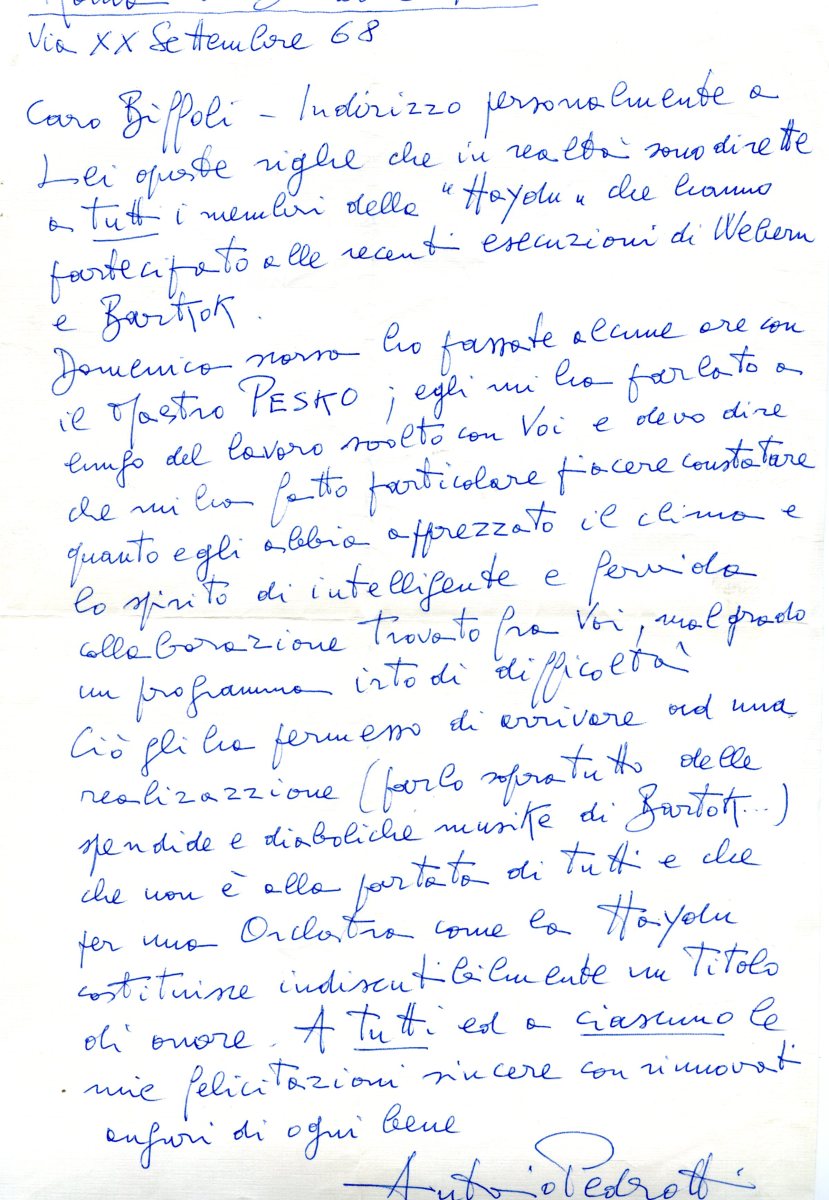 Via XX Settembre 68
Caro Biffoli - Indirizzo personalmente a
Lei queste righe che in realtà sono dirette
a tutti i membri della "Haydn" che hanno
partecipato alle recenti esecuzioni di Webern
e Bartok.
Domenica scorsa ho passate alcune ore con
il Maestro PESKO; egli mi ha parlato a
lungo del lavoro svolto con Voi e devo dire
che mi ha fatto particolare piacere constatare
quanto egli abbia apprezzato il clima e
lo spirito di intelligente e fervida
collaborazione trovato fra Voi, malgrado
un programma irto di difficoltà
Ciò gli ha permesso di arrivare ad una
realizazzione (parlo sopratutto delle
spendide e diaboliche musike di Bartok...)
che non è alla portata di tutti e che
per una Orchestra come la Haydn
costituisce indiscutibilmente un Titolo
di onore. A tutti ed a ciascuno le
mie felicitazioni sincere con rinnovati
auguri di ogni bene
Antonio Pedrotti